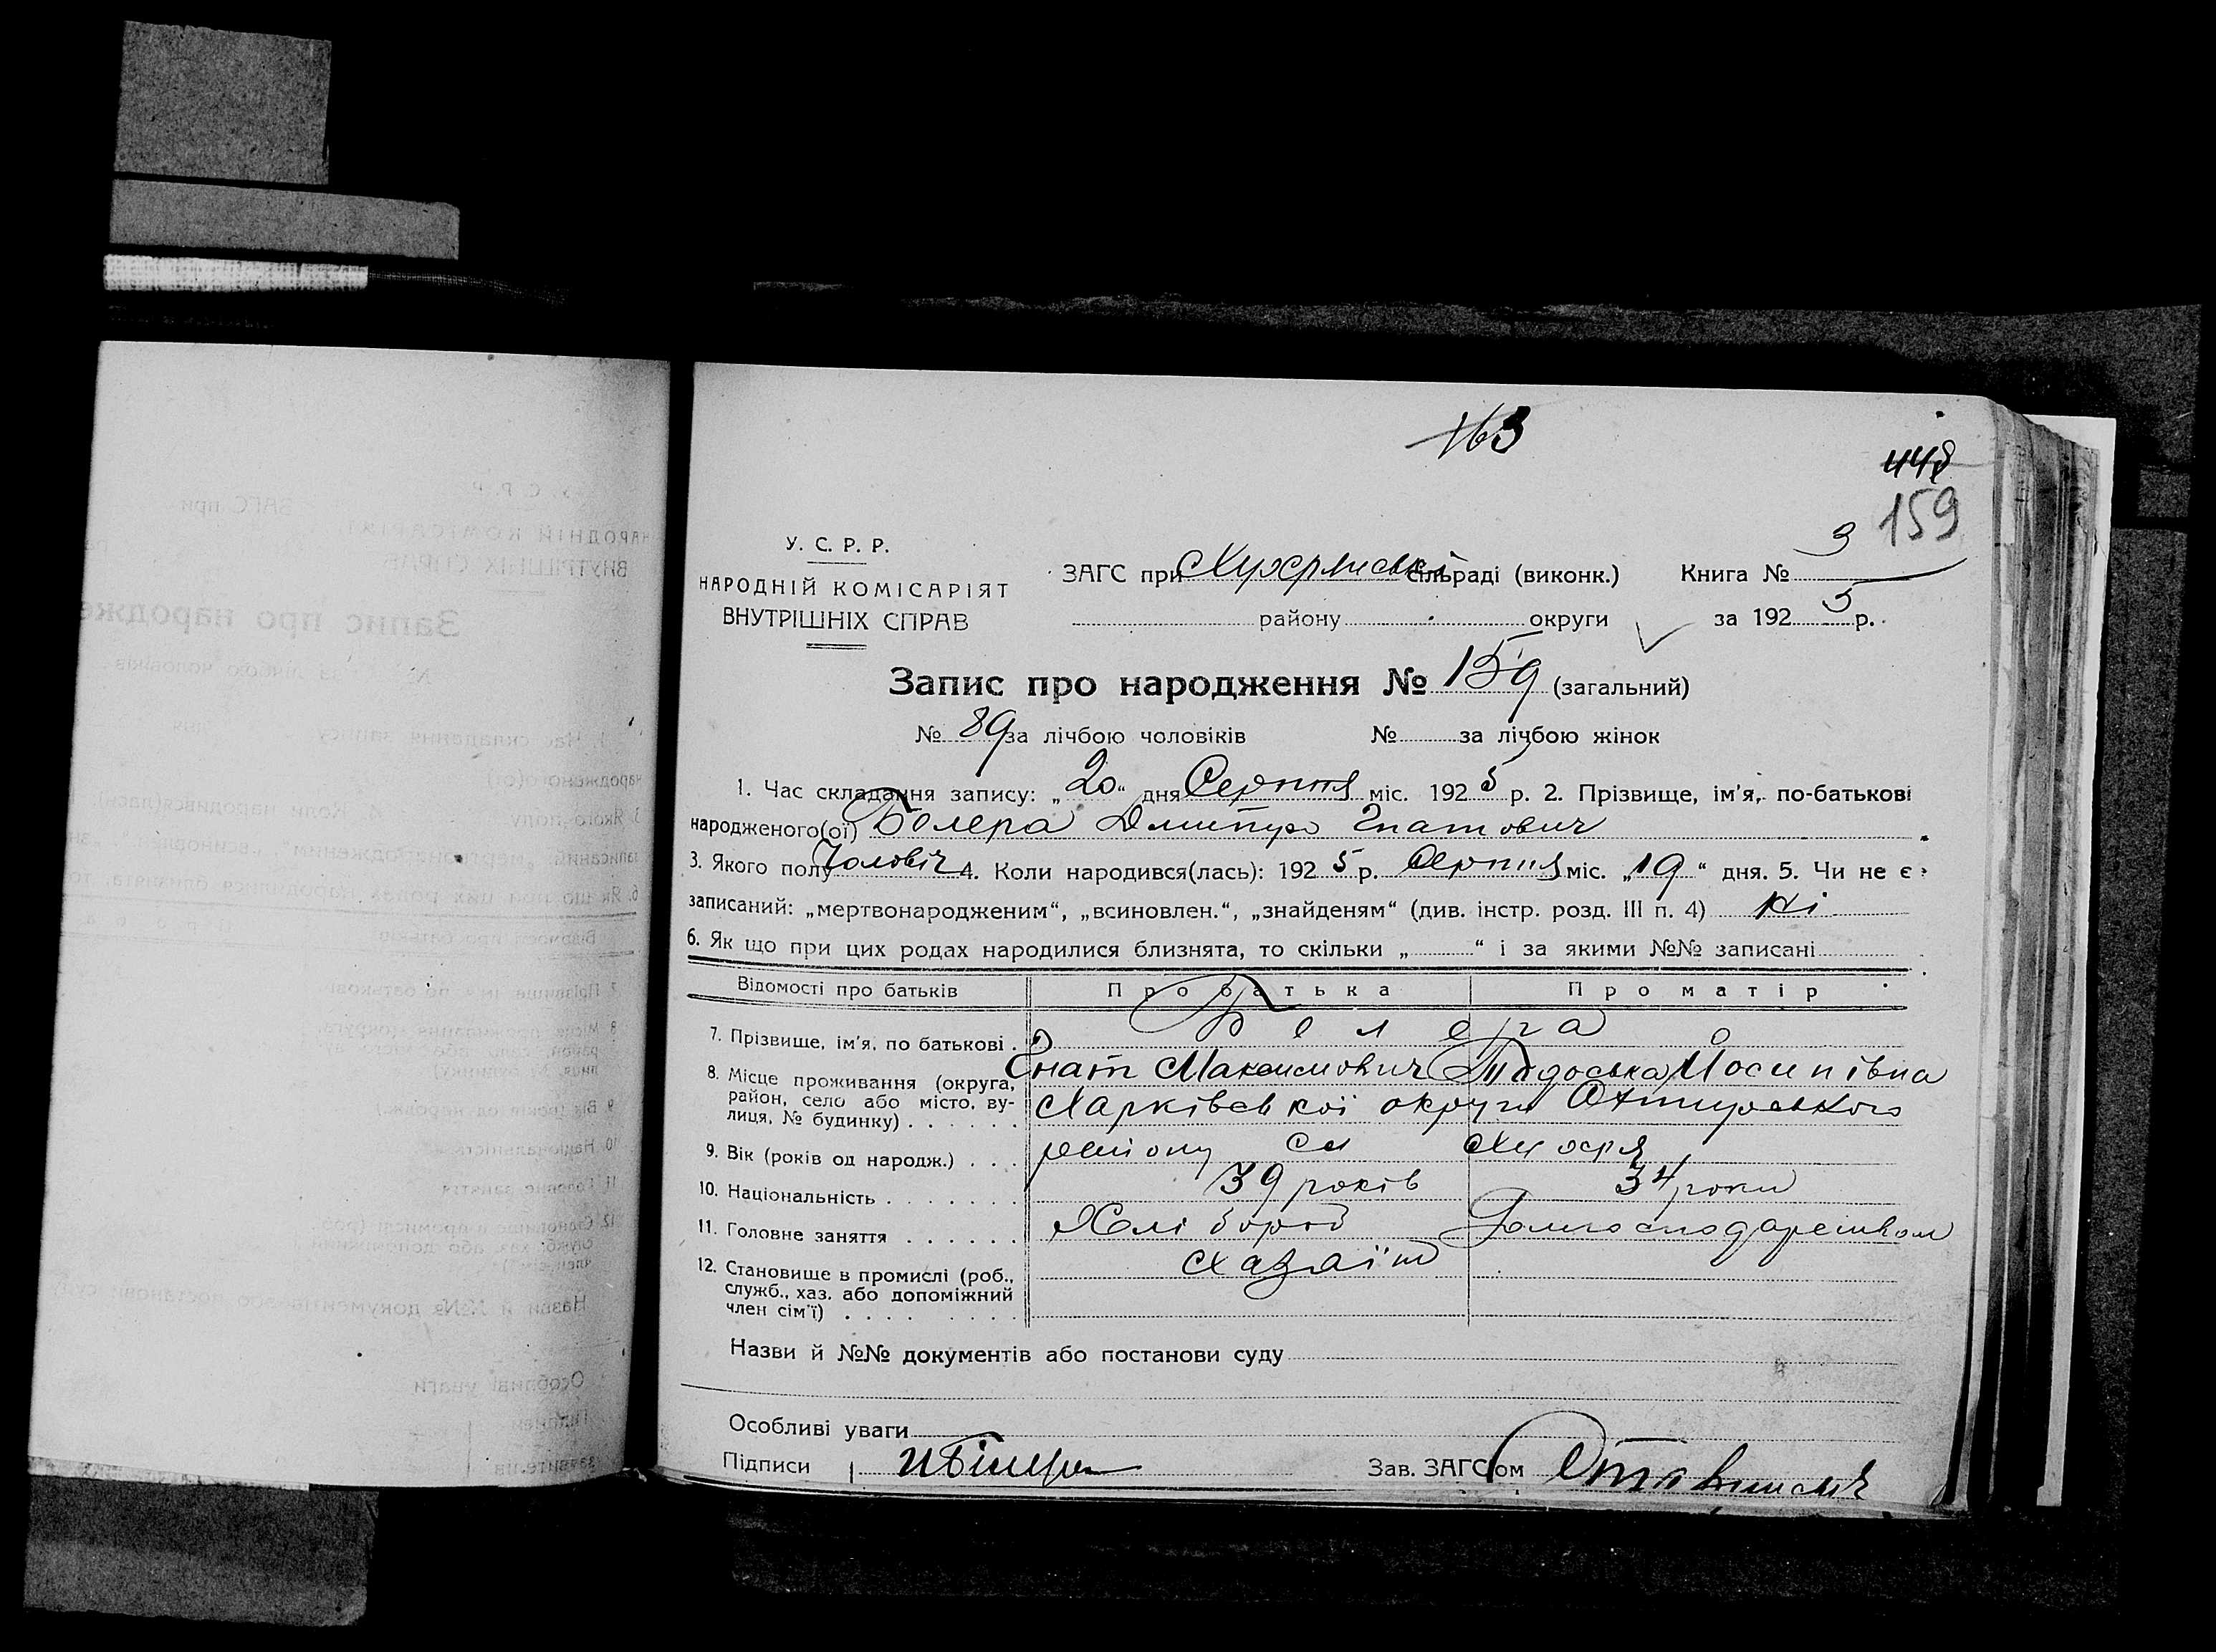 163
448
159
У. С. Р. Р.
НАРОДНІЙ КОМІСАРІЯТ
ВНУТРІШНІХ СПРАВ
ЗАГС при сільраді (виконк.) Книга № 3
району округи за 1925 р.
Запис про народження № 159 (загальний)
№ 89 за лічбою чоловіків № за лічбою жінок
1. Час складання запису: „20“ дня Серпня міс. 1925 р. 2. Прізвище, ім'я, по-батькові
народженого(ої) Болера Дмитро Гнатович
3. Якого полу Чоловіч 4. Коли народився(лась): 1925 р. Серпня міс. „19“ дня. 5. Чи не є
записаний: „мертвонародженим“, „всиновлен.“, „знайденям“ (див. інстр. розд. III п. 4) Ні
6. Як що при цих родах народилися близнята, то скільки „ “ і за якими №№ записані
Відомості про батьків Про батька Про матір
7. Прізвище, ім'я, по батькові . Болера
Гнат Максимович Тодоська Йосипівна
8. Місце проживання (округа, район, село або місто, ву-
лиця, № будинку) . . . . . . Харківської округи
району
9. Вік (років од народж.) . . . 39 років 34 роки
10. Національність . . . . . . .
11. Головне заняття . . . . . . Хлібороб
12. Становище в промислі (роб., служб., хаз. або допоміжний
член сім'ї) . . . . . . . . Хазаїн
Назви й №№ документів або постанови суду
Особливі уваги
Підписи
Зав. ЗАГС'ом